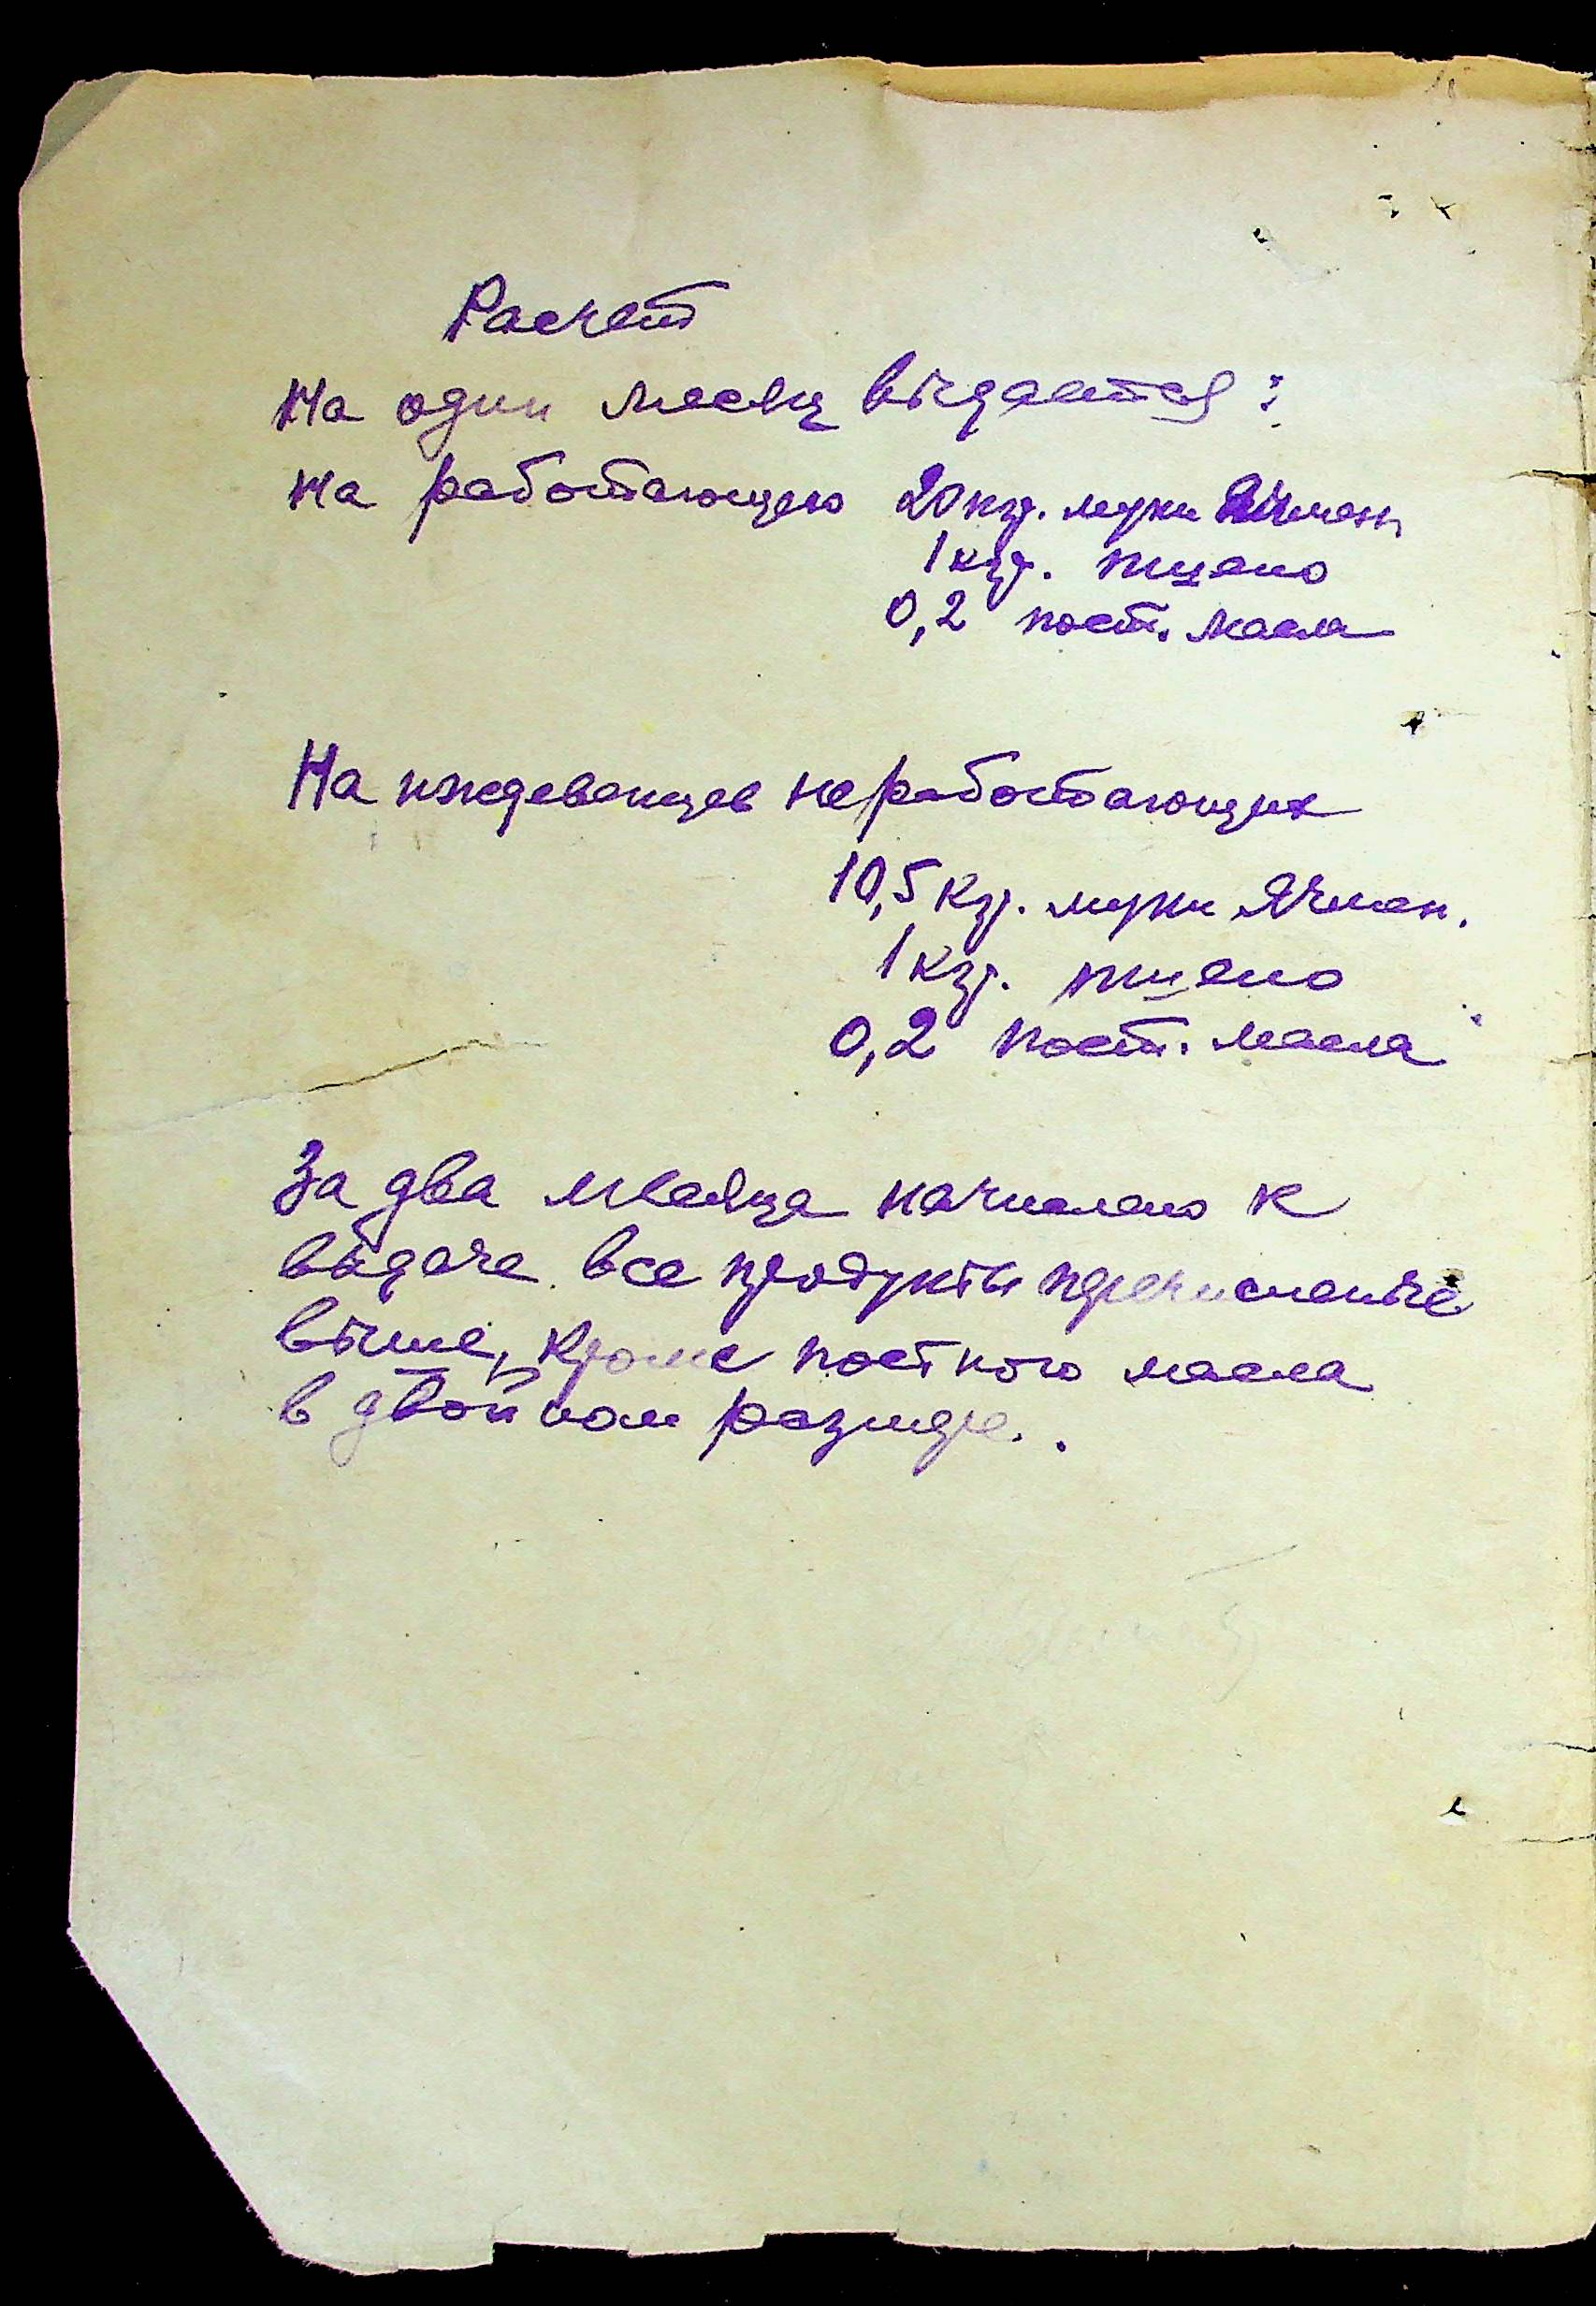 Расчет
На один месяц выдается:
На работающего 20 кгр. муки Ячмен.
1 кгр. пшено
0,2 пост. масла
На иждевенцев неработающих
10,5 кгр. муки Ячмен.
1 кгр. пшено
0,2 пост. масла
За два месяца начислено к
выдаче все продукты перечисленые
выше, кроме постного масла
в двойном размере.